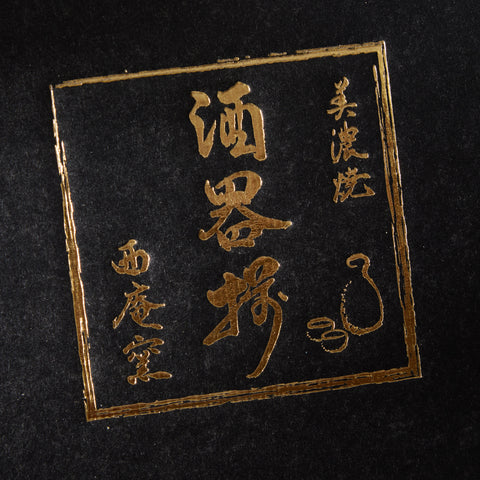 美濃焼
酒器揃
西庵窯